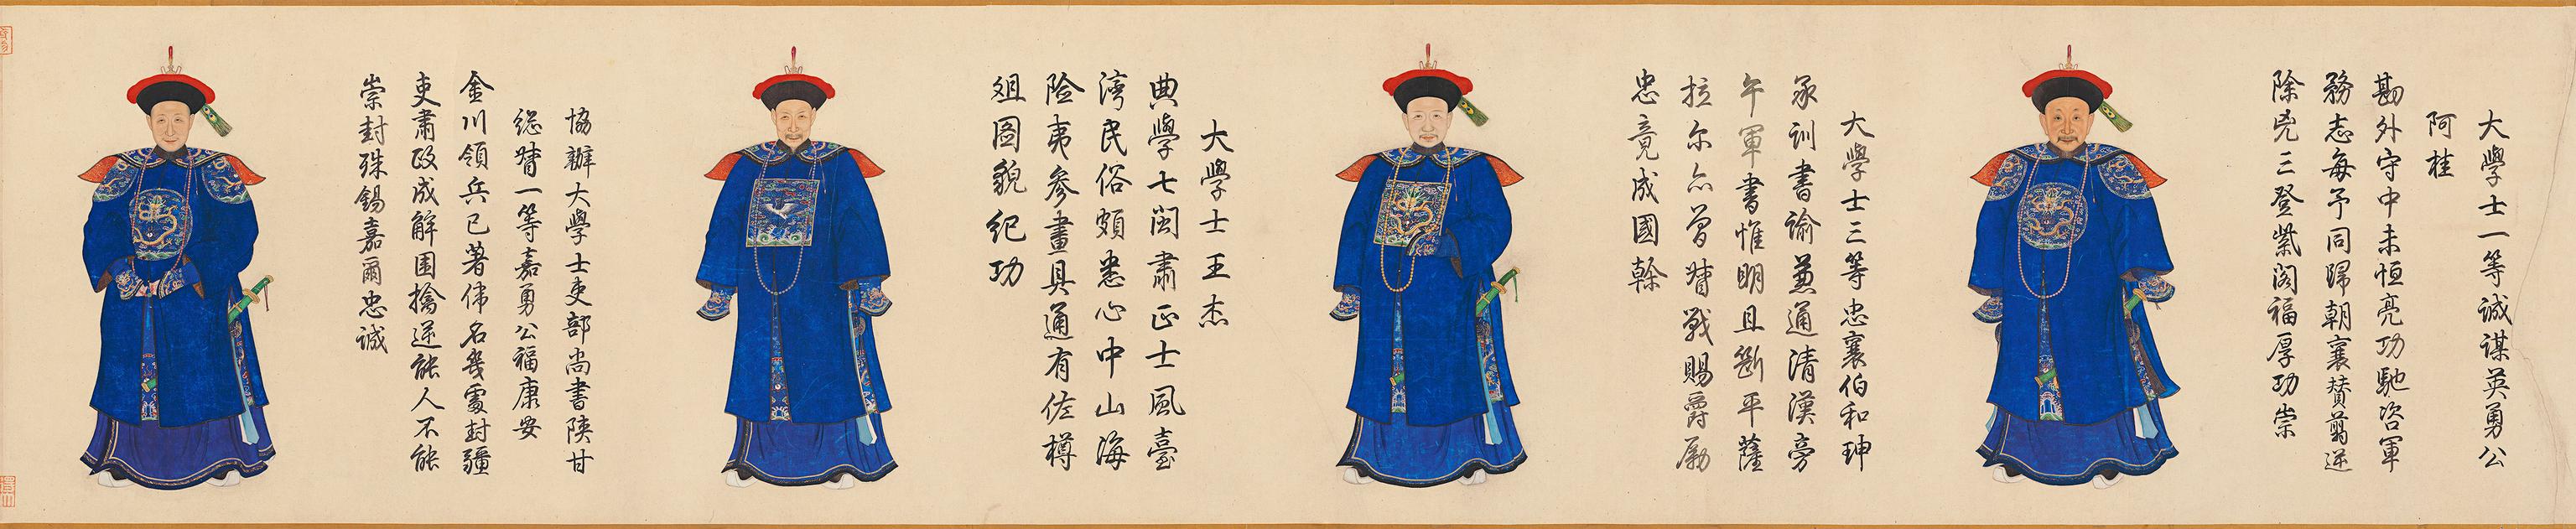 大學士一等誠謀英勇公
阿桂
勘外守中未恒亮功馳咨軍
務志每予同歸朝襄贊翦逆
除兇三登紫閣福厚功崇
大學士三等忠襄伯和珅
承訓書諭兼通清漢旁
午軍書惟明且斷平薩
拉尔亦曾督戰賜爵勵
忠竟成國幹
大學士王杰
典學七閩肅正士風臺
灣民俗頗悉心中山海
險夷參畫具通有佐樽
俎圖貌紀功
協辦大學士吏部尚書陝甘
總督一等嘉勇公福康安
金川領兵已著偉名幾處封疆
吏肅政成解圍擒逆能人不能
崇封殊錫嘉爾忠誠